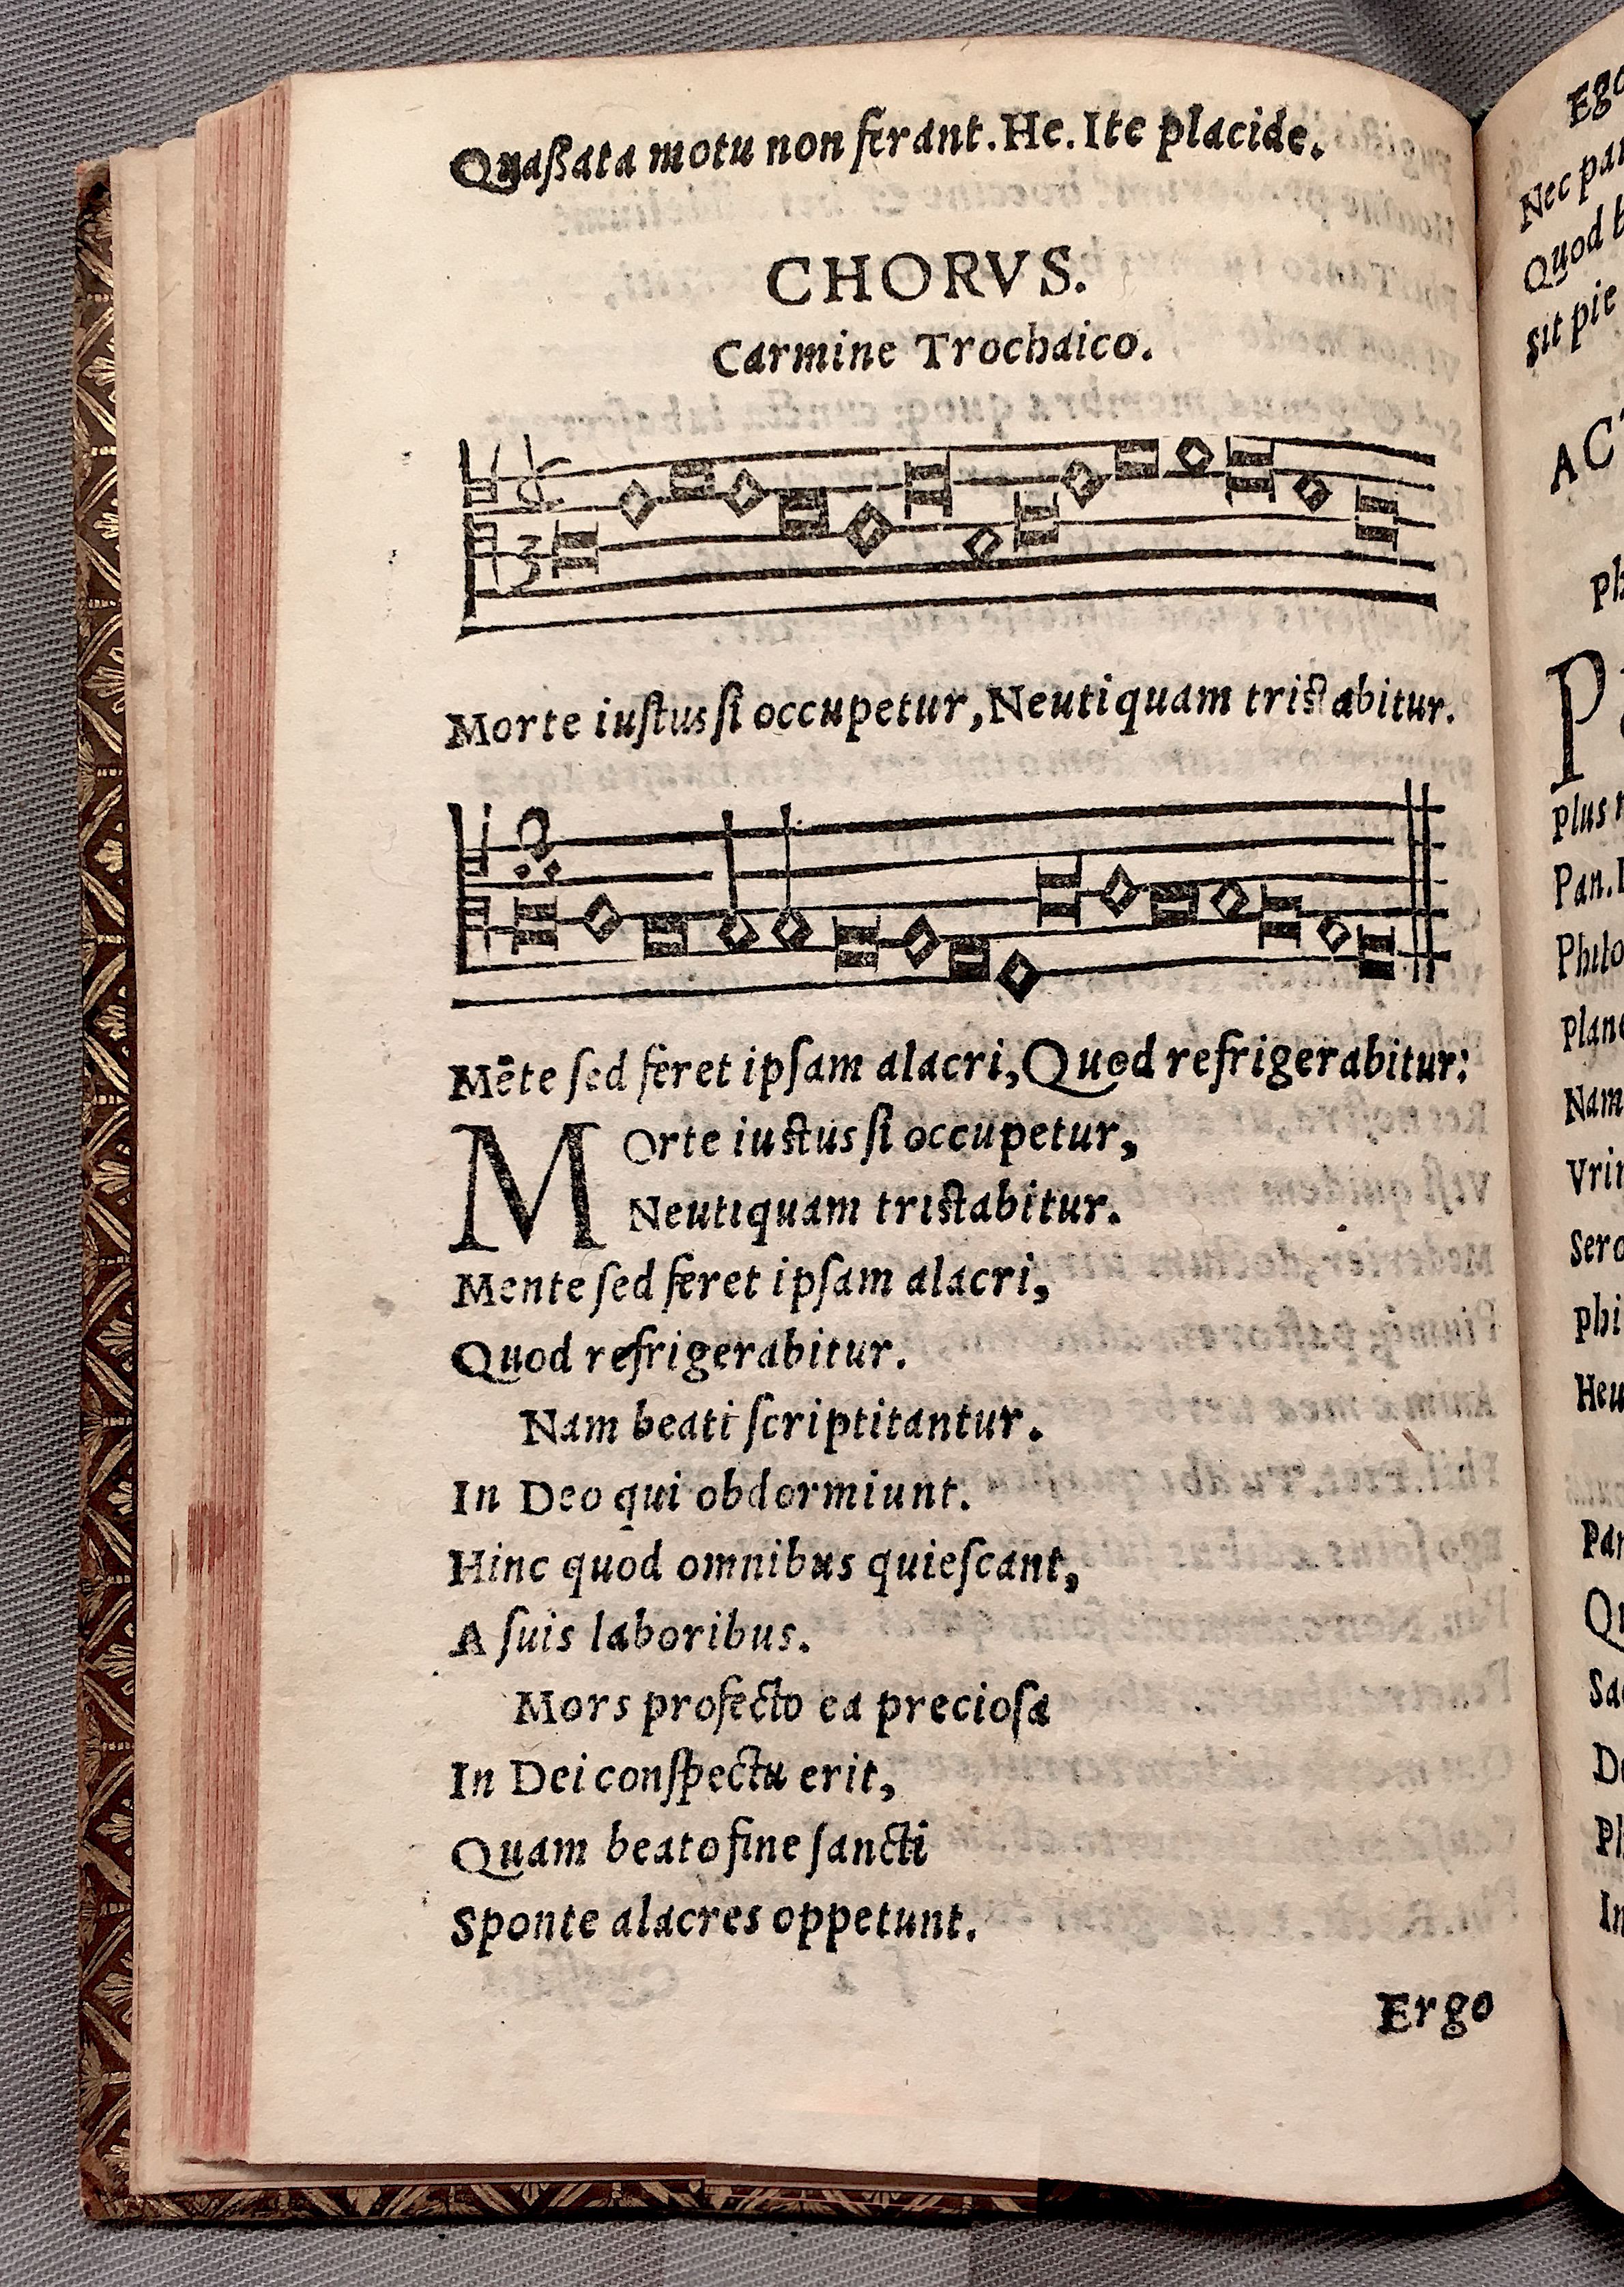 Quaßata motu non ferant. He. Ite placide.
CHORVS.
Carmine Trochaico.
3
Morte iuſtus ſi occupetur, Neutiquam triſtabitur.
Mēte ſed feret ipſam alacri, Quod refrigerabitur:
MOrte iuſtus ſi occupetur,
Neutiquam triſtabitur.
Mente ſed feret ipſam alacri,
Quod refrigerabitur.
Nam beati ſcriptitantur.
In Deo qui obdormiunt.
Hinc quod omnibus quieſcant,
A ſuis laboribus.
Mors profecto ea precioſa
In Dei conſpectu erit,
Quam beato fine ſancti
Sponte alacres oppetunt.
Ergo
Ego
Nec
Quod
Sit pie
Plus
Pan.
Nam
Heu